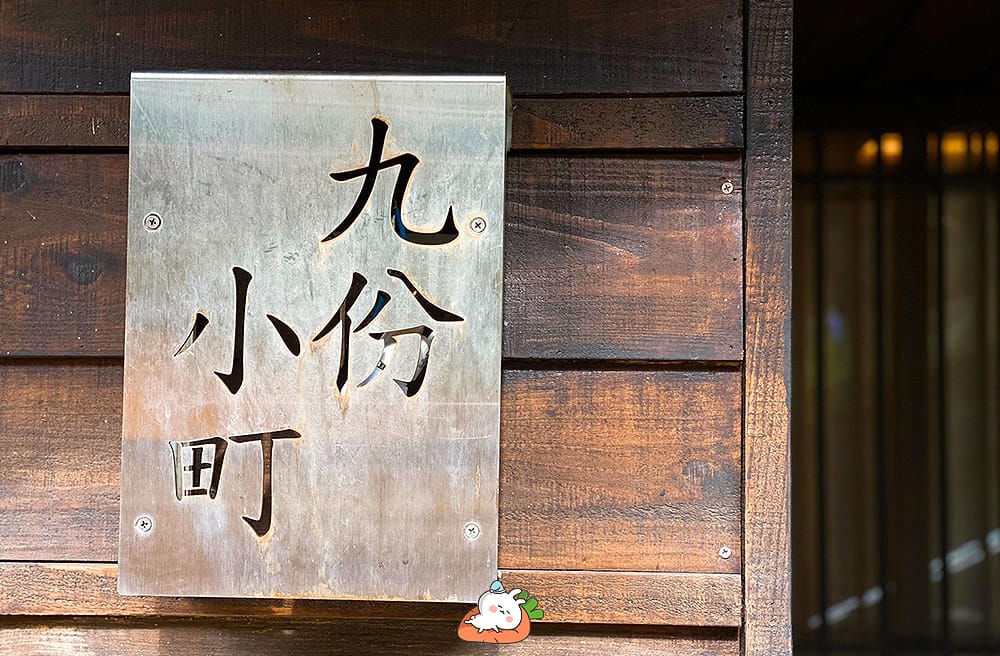 九份
小町